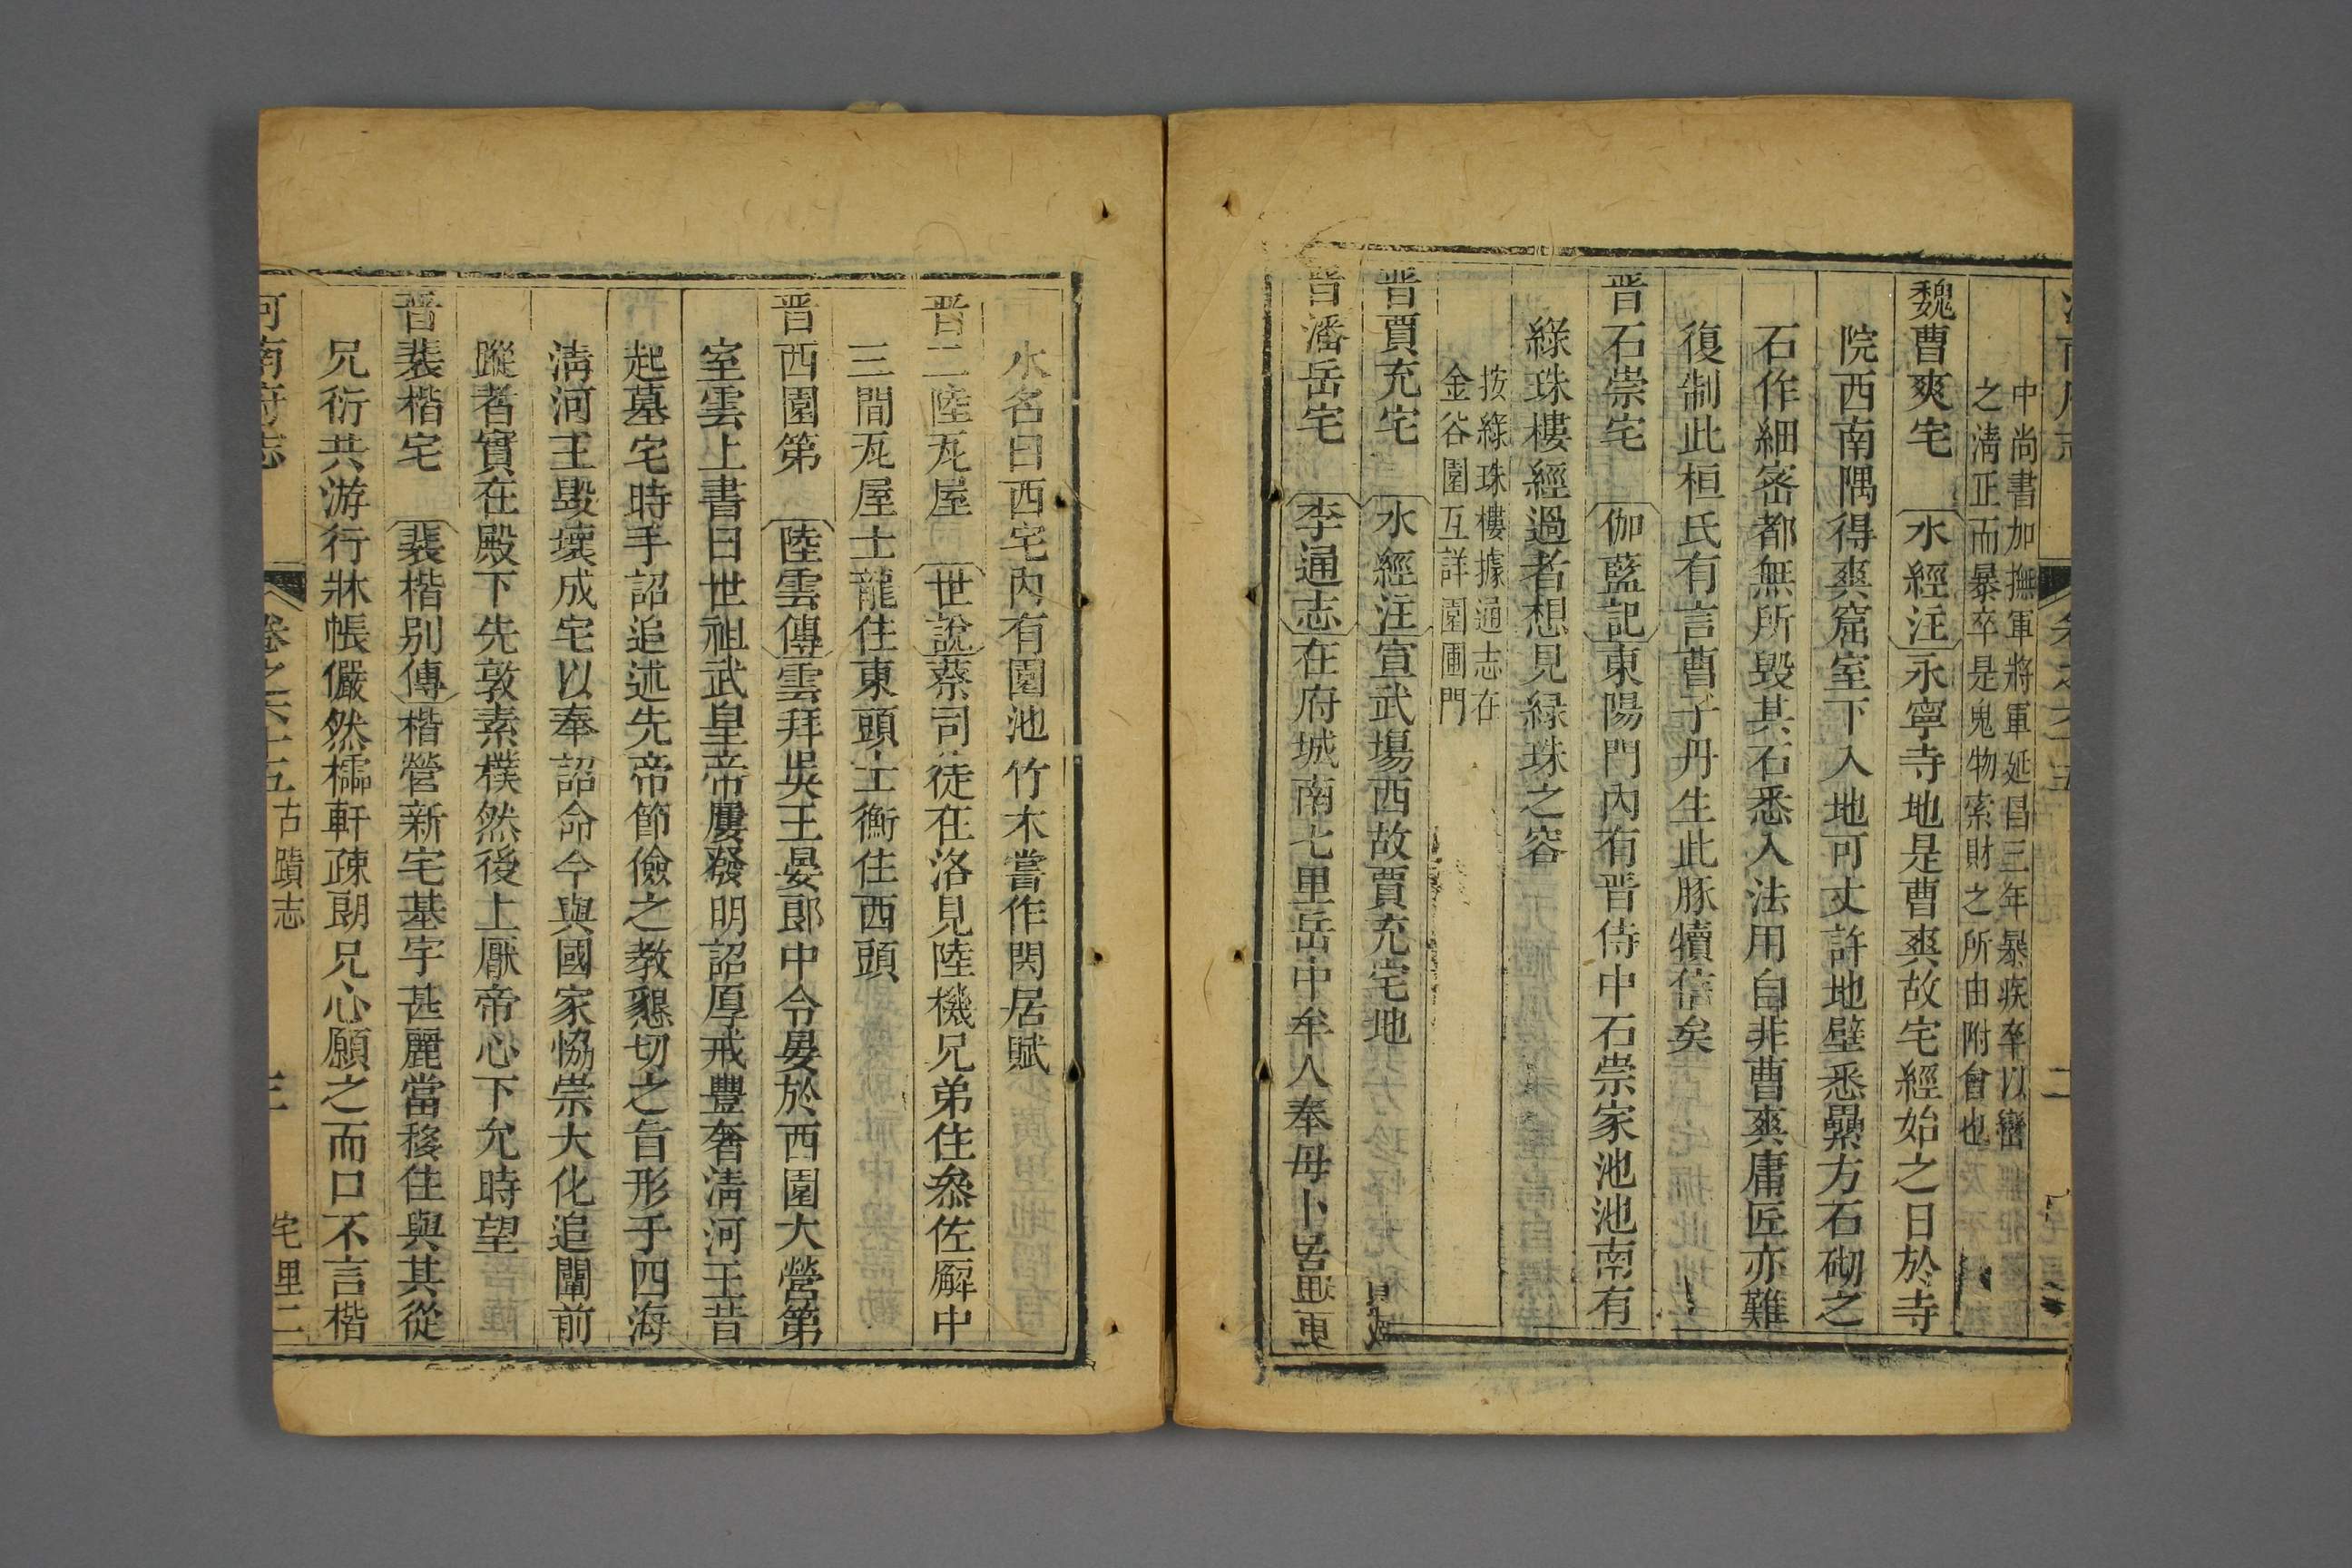 中尚書加撫軍將軍延昌三年暴疾卒以巒
之淸正而暴卒是鬼物索財之所由附會也
魏曹爽宅 水經注永寧寺地是曹爽故宅經始之日於寺
院西南隅得爽窟室下入地可丈許地壁悉纍方石砌之
石作細密都無所毀其石悉入法用自非曹爽庸匠亦難
復制此桓氏有言曹子丹生此豚犢信矣
晋石崇宅 伽藍記東陽門內有晋侍中石崇家池池南有
綠珠樓經過者想見緑珠之容
按綠珠樓據通志在
金谷園互詳園圃門
晋賈充宅 水經注宣武場西故賈充宅地
晋潘岳宅 李通志在府城南七里岳中牟人奉母卜居東
水名曰西宅内有園池竹木嘗作閑居賦
晋二陸瓦屋 世說蔡司徒在洛見陸機兄弟住叅佐廨中
三間瓦屋士龍住東頭士衡住西頭
晋西園第 陸雲傳雲拜吳王晏郎中令晏於西園大營第
室雲上書曰世祖武皇帝屢發明詔厚戒豐奢淸河王昔
起墓宅時手詔追述先帝節儉之教懇切之旨形乎四海
淸河王毀壞成宅以奉詔命今與國家恊崇大化追闡前
蹤者實在殿下先敦素樸然後上厭帝心下允時望
晋裴楷宅 裴楷别傳楷營新宅基宇甚麗當移住與其從
兄衍共游行牀帳儼然櫺軒疎朗兄心願之而口不言楷
河南府志 卷之六十五 古蹟志 三 宅里二